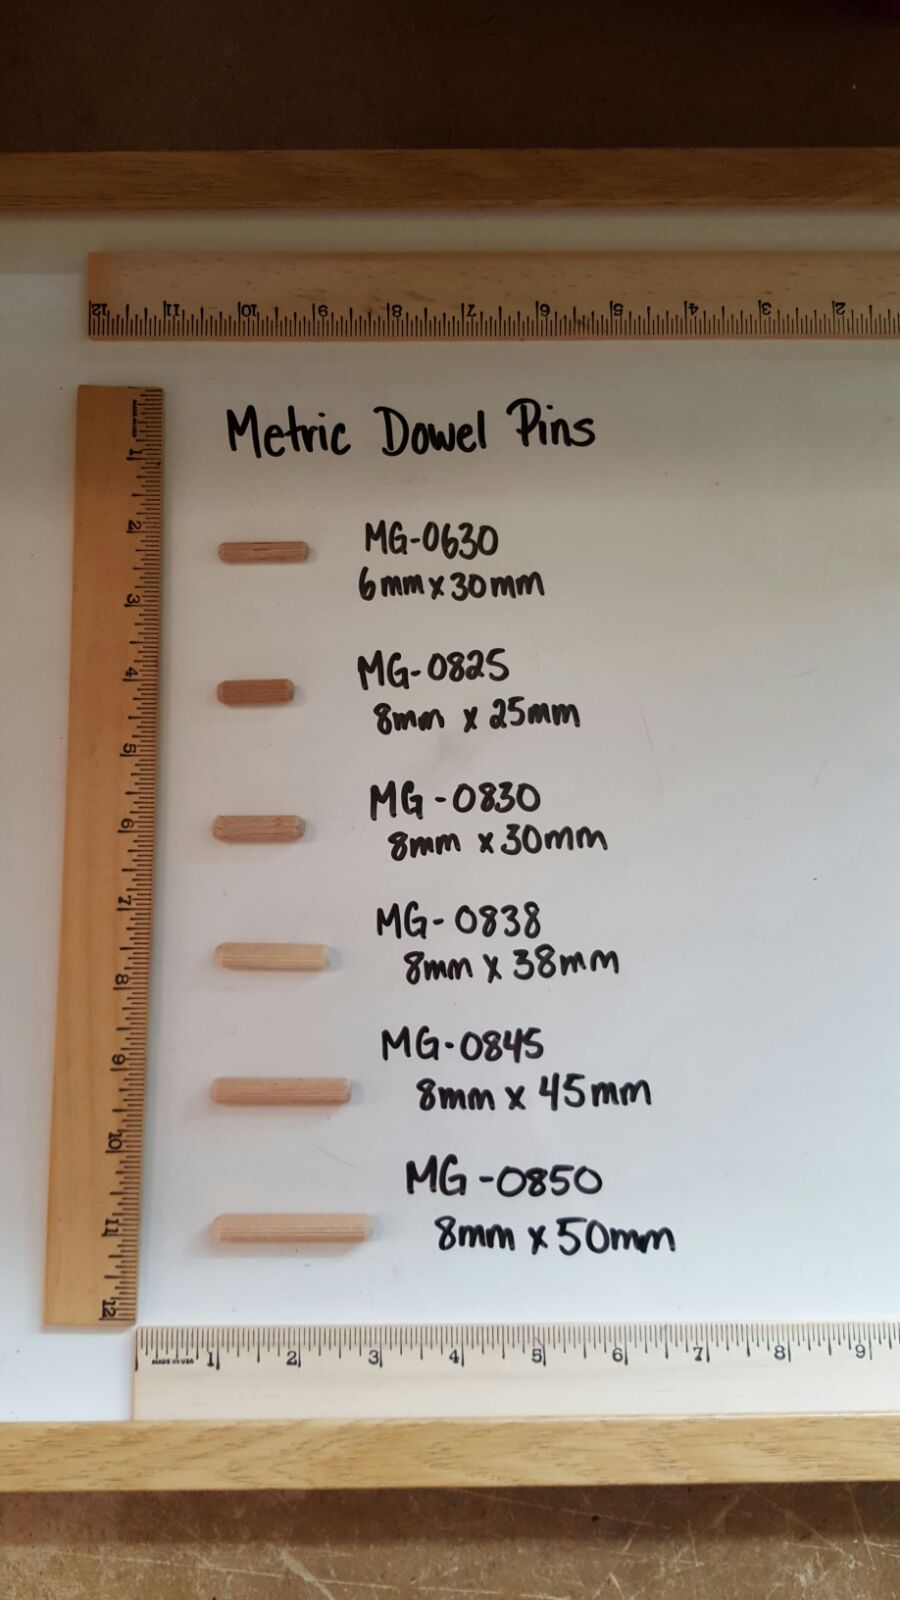 12 11 10 9 8 7 6 5 4 3 2
MADE IN USA
1
2
3
4
5
6
7
8
9
10
11
12
Metric Dowel Pins
MG-0630
6mm x 30mm
MG-0825
8mm x 25mm
MG-0830
8mm x 30mm
MG-0838
8mm x 38mm
MG-0845
8mm x 45mm
MG-0850
8mm x 50mm
MADE IN USA 1 2 3 4 5 6 7 8 9